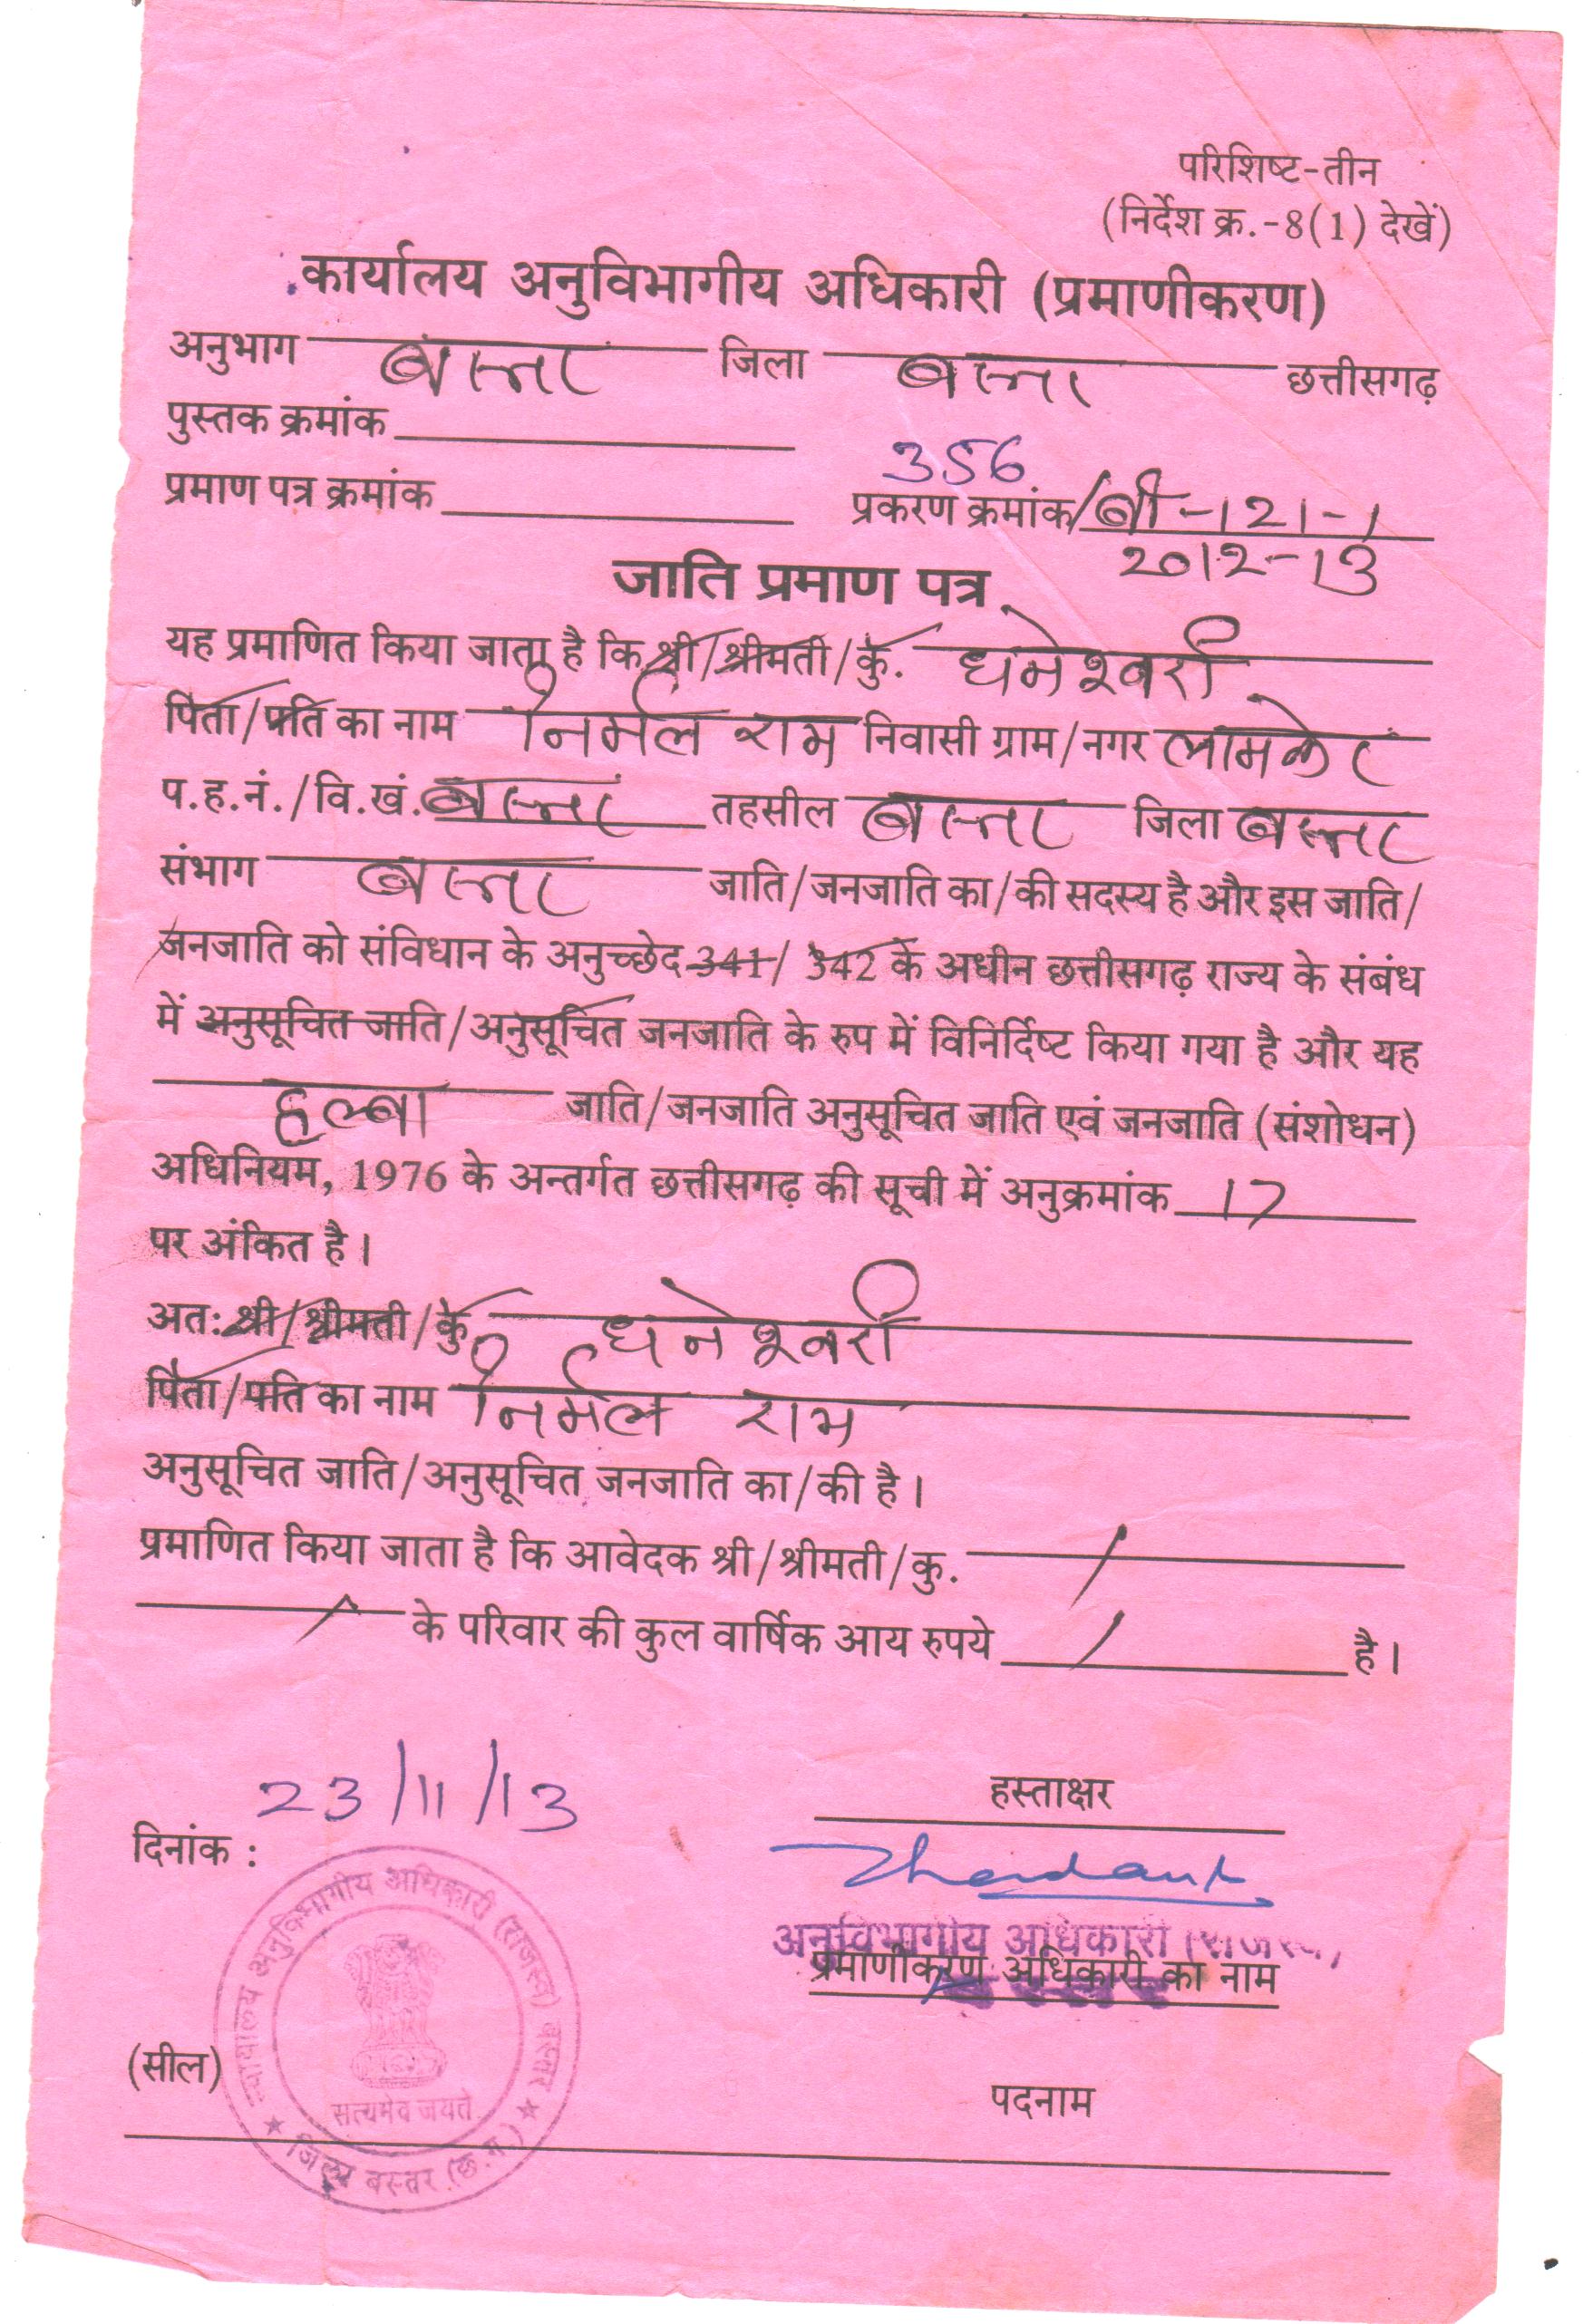 परिशिष्ट-तीन
(निर्देश क्र.-8(1) देखें)
कार्यालय अनुविभागीय अधिकारी (प्रमाणीकरण)
अनुभाग बस्तर जिला बस्तर छत्तीसगढ़
पुस्तक क्रमांक
356
प्रमाण पत्र क्रमांक प्रकरण क्रमांक/बी-121-1
2012-13
जाति प्रमाण पत्र
यह प्रमाणित किया जाता है कि श्री/श्रीमती/कु. धनेश्वरी
पिता/पति का नाम निर्मल राम निवासी ग्राम/नगर लामकेर
प.ह.नं./वि.खं. बस्तर तहसील बस्तर जिला बस्तर
संभाग बस्तर जाति/जनजाति का/की सदस्य है और इस जाति/
जनजाति को संविधान के अनुच्छेद 341/ 342 के अधीन छत्तीसगढ़ राज्य के संबंध
में अनुसूचित जाति/अनुसूचित जनजाति के रुप में विनिर्दिष्ट किया गया है और यह
हल्बा जाति/जनजाति अनुसूचित जाति एवं जनजाति (संशोधन)
अधिनियम, 1976 के अन्तर्गत छत्तीसगढ़ की सूची में अनुक्रमांक 17
पर अंकित है।
अतः श्री/श्रीमती/कु. धनेश्वरी
पिता/पति का नाम निर्मल राम
अनुसूचित जाति/अनुसूचित जनजाति का/की है।
प्रमाणित किया जाता है कि आवेदक श्री/श्रीमती/कु.
के परिवार की कुल वार्षिक आय रुपये है।
23/11/13
हस्ताक्षर
दिनांक :
अनुविभागीय अधिकारी (राजस्व)
प्रमाणीकरण अधिकारी का नाम
(सील)
पदनाम
न्यायालय अनुविभागीय अधिकारी (राजस्व) बस्तर
सत्यमेव जयते
जिला बस्तर (छ.ग.)